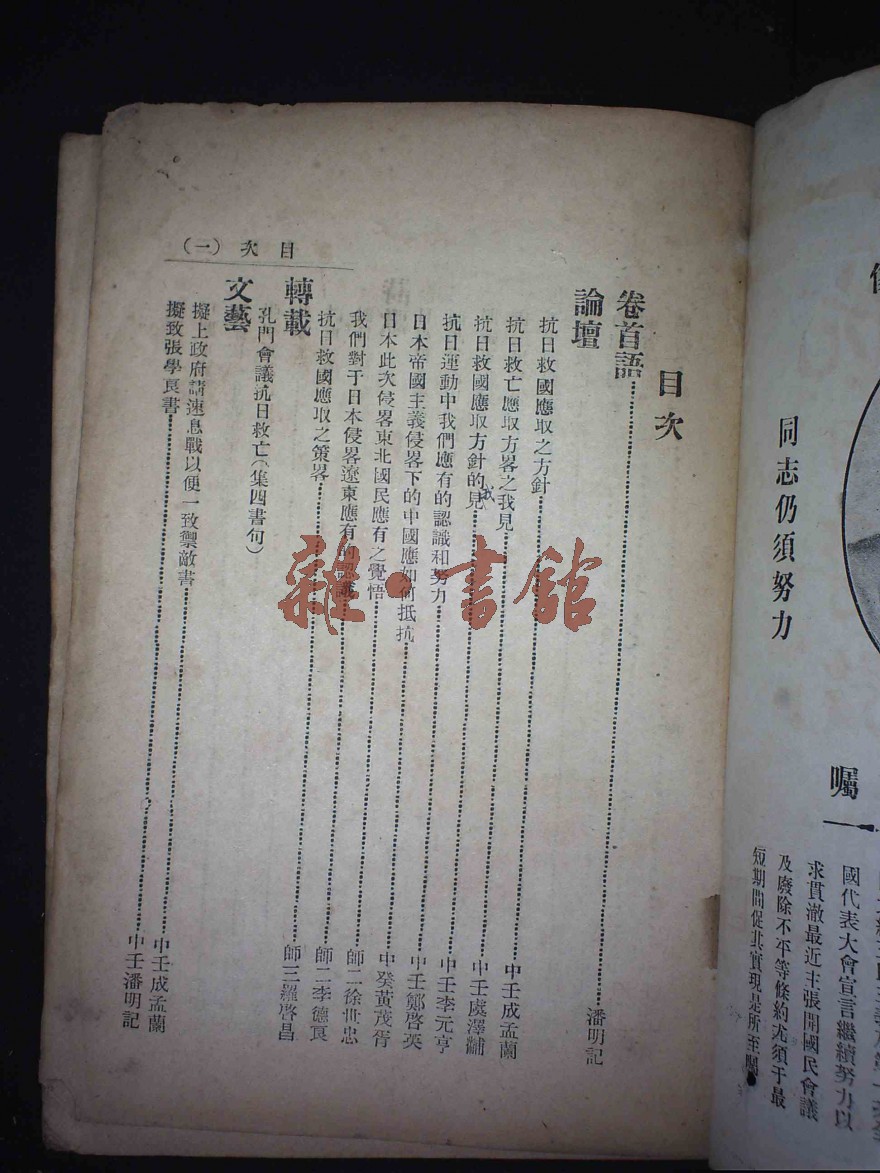 國代表大會宣言繼續努力以
求貫澈最近主張開國民會議
及廢除不平等條約尤須于最
短期間促其實現是所至囑
囑
同志仍須努力
目次
卷首語……潘明記
論壇
抗日救國應取之方針……中壬成孟蘭
抗日救亡應取方畧之我見……中壬虞澤黼
抗日救國應取方針的我見……中壬李元亨
抗日運動中我們應有的認識和努力……中壬鄭啓英
日本帝國主義侵畧下的中國應如何抵抗……中癸黃茂胥
日本此次侵畧東北國民應有之覺悟……師二徐世忠
我們對于日本侵畧遼東應有的認識……師二李德良
抗日救國應取之策畧……師三羅啓昌
轉載
孔門會議抗日救亡(集四書句)
文藝
擬上政府請速息戰以便一致禦敵書……中壬成孟蘭
擬致張學良書……中壬潘明記
目次(一)
雜·書館